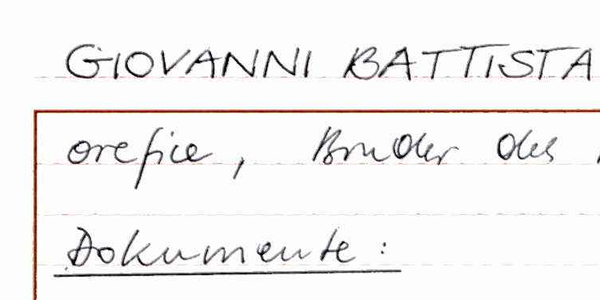 GIOVANNI BATTISTA
orefice, Bruder des
Dokumente: